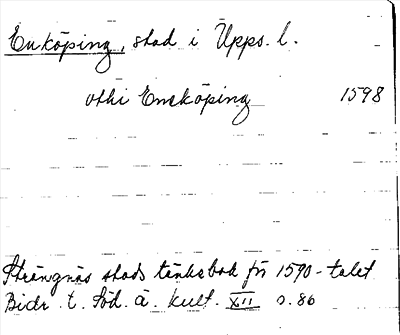 Enköping, stad i Upps. l.
uthi Eneköping 1598
Strängnäs stads tänkebok för 1590-talet
Bidr. t. Söd. ä. kult. XII s. 86